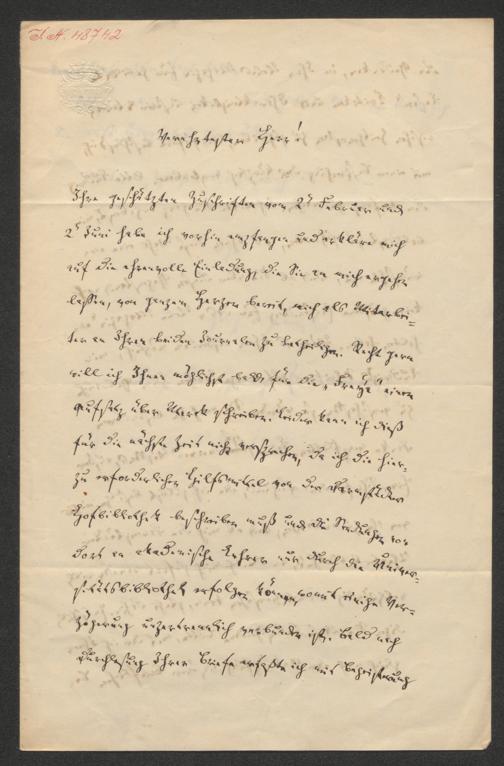 I. N. 48742
Verehrtester Herr!
Ihre geschätzten Zuschriften vom 2t Februar und
2t Juni habe ich vorhin empfangen und erkläre mich
auf die ehrenvolle Einladung, die Sie an mich ergehen
ließen, von ganzem Herzen bereit, mich als Mitarbei=
ter an Ihren beiden Journalen zu betheiligen. Recht gern
will ich Ihnen möglichst bald für die „Freya" einen
Aufsatz über Merck schreiben. Leider kann ich dieß
für die nächste Zeit nicht versprechen, da ich die hier=
zu erforderlichen Hilfsmittel von der Darmstädter
Hofbibliothek beschreiben muß und die Sendungen von
dort an akademische Lehrer nur durch die Univer=
sitätsbibliothek erfolgen können, womit einige Ver=
zögerung unzertrennlich verbunden ist. Bald nach
Durchlesung Ihrer Briefe erfaßte ich mit Begeisterung